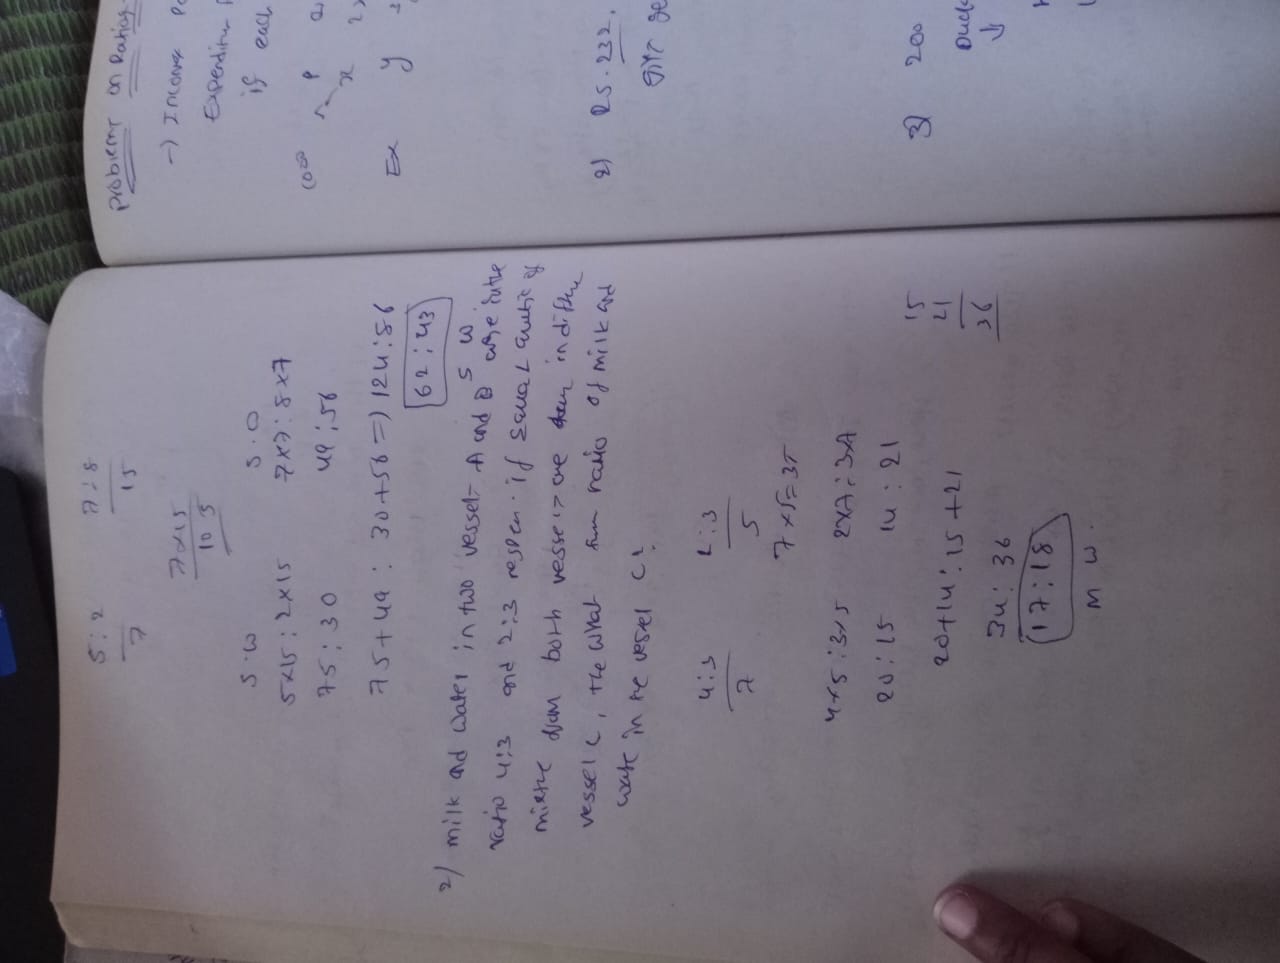 5:2 7:8
7 15
7x15
105
S.W S.O
5x15 : 2x15 7x7 : 8x7
75 : 30 49 : 56
75+49 : 30+56 =) 124 : 86
62 : 43
S W
2) milk and water in two vessels A and B are in the
ratio 4:3 and 2:3 respen. if equal quantities of
mixture from both vessels are in
vessel C, the what ratio of milk and
water in the vessel C?
4:3 2:3
7 5
7x5=35
4x5:3x5 2x7:3x7
20:15 14:21
20+14:15+21
34:36
17:18
M W.
15
21
36
Problems on Ratios
-) Income
Expenditure
if each
Ex y
2) Rs. 232.
3) 200